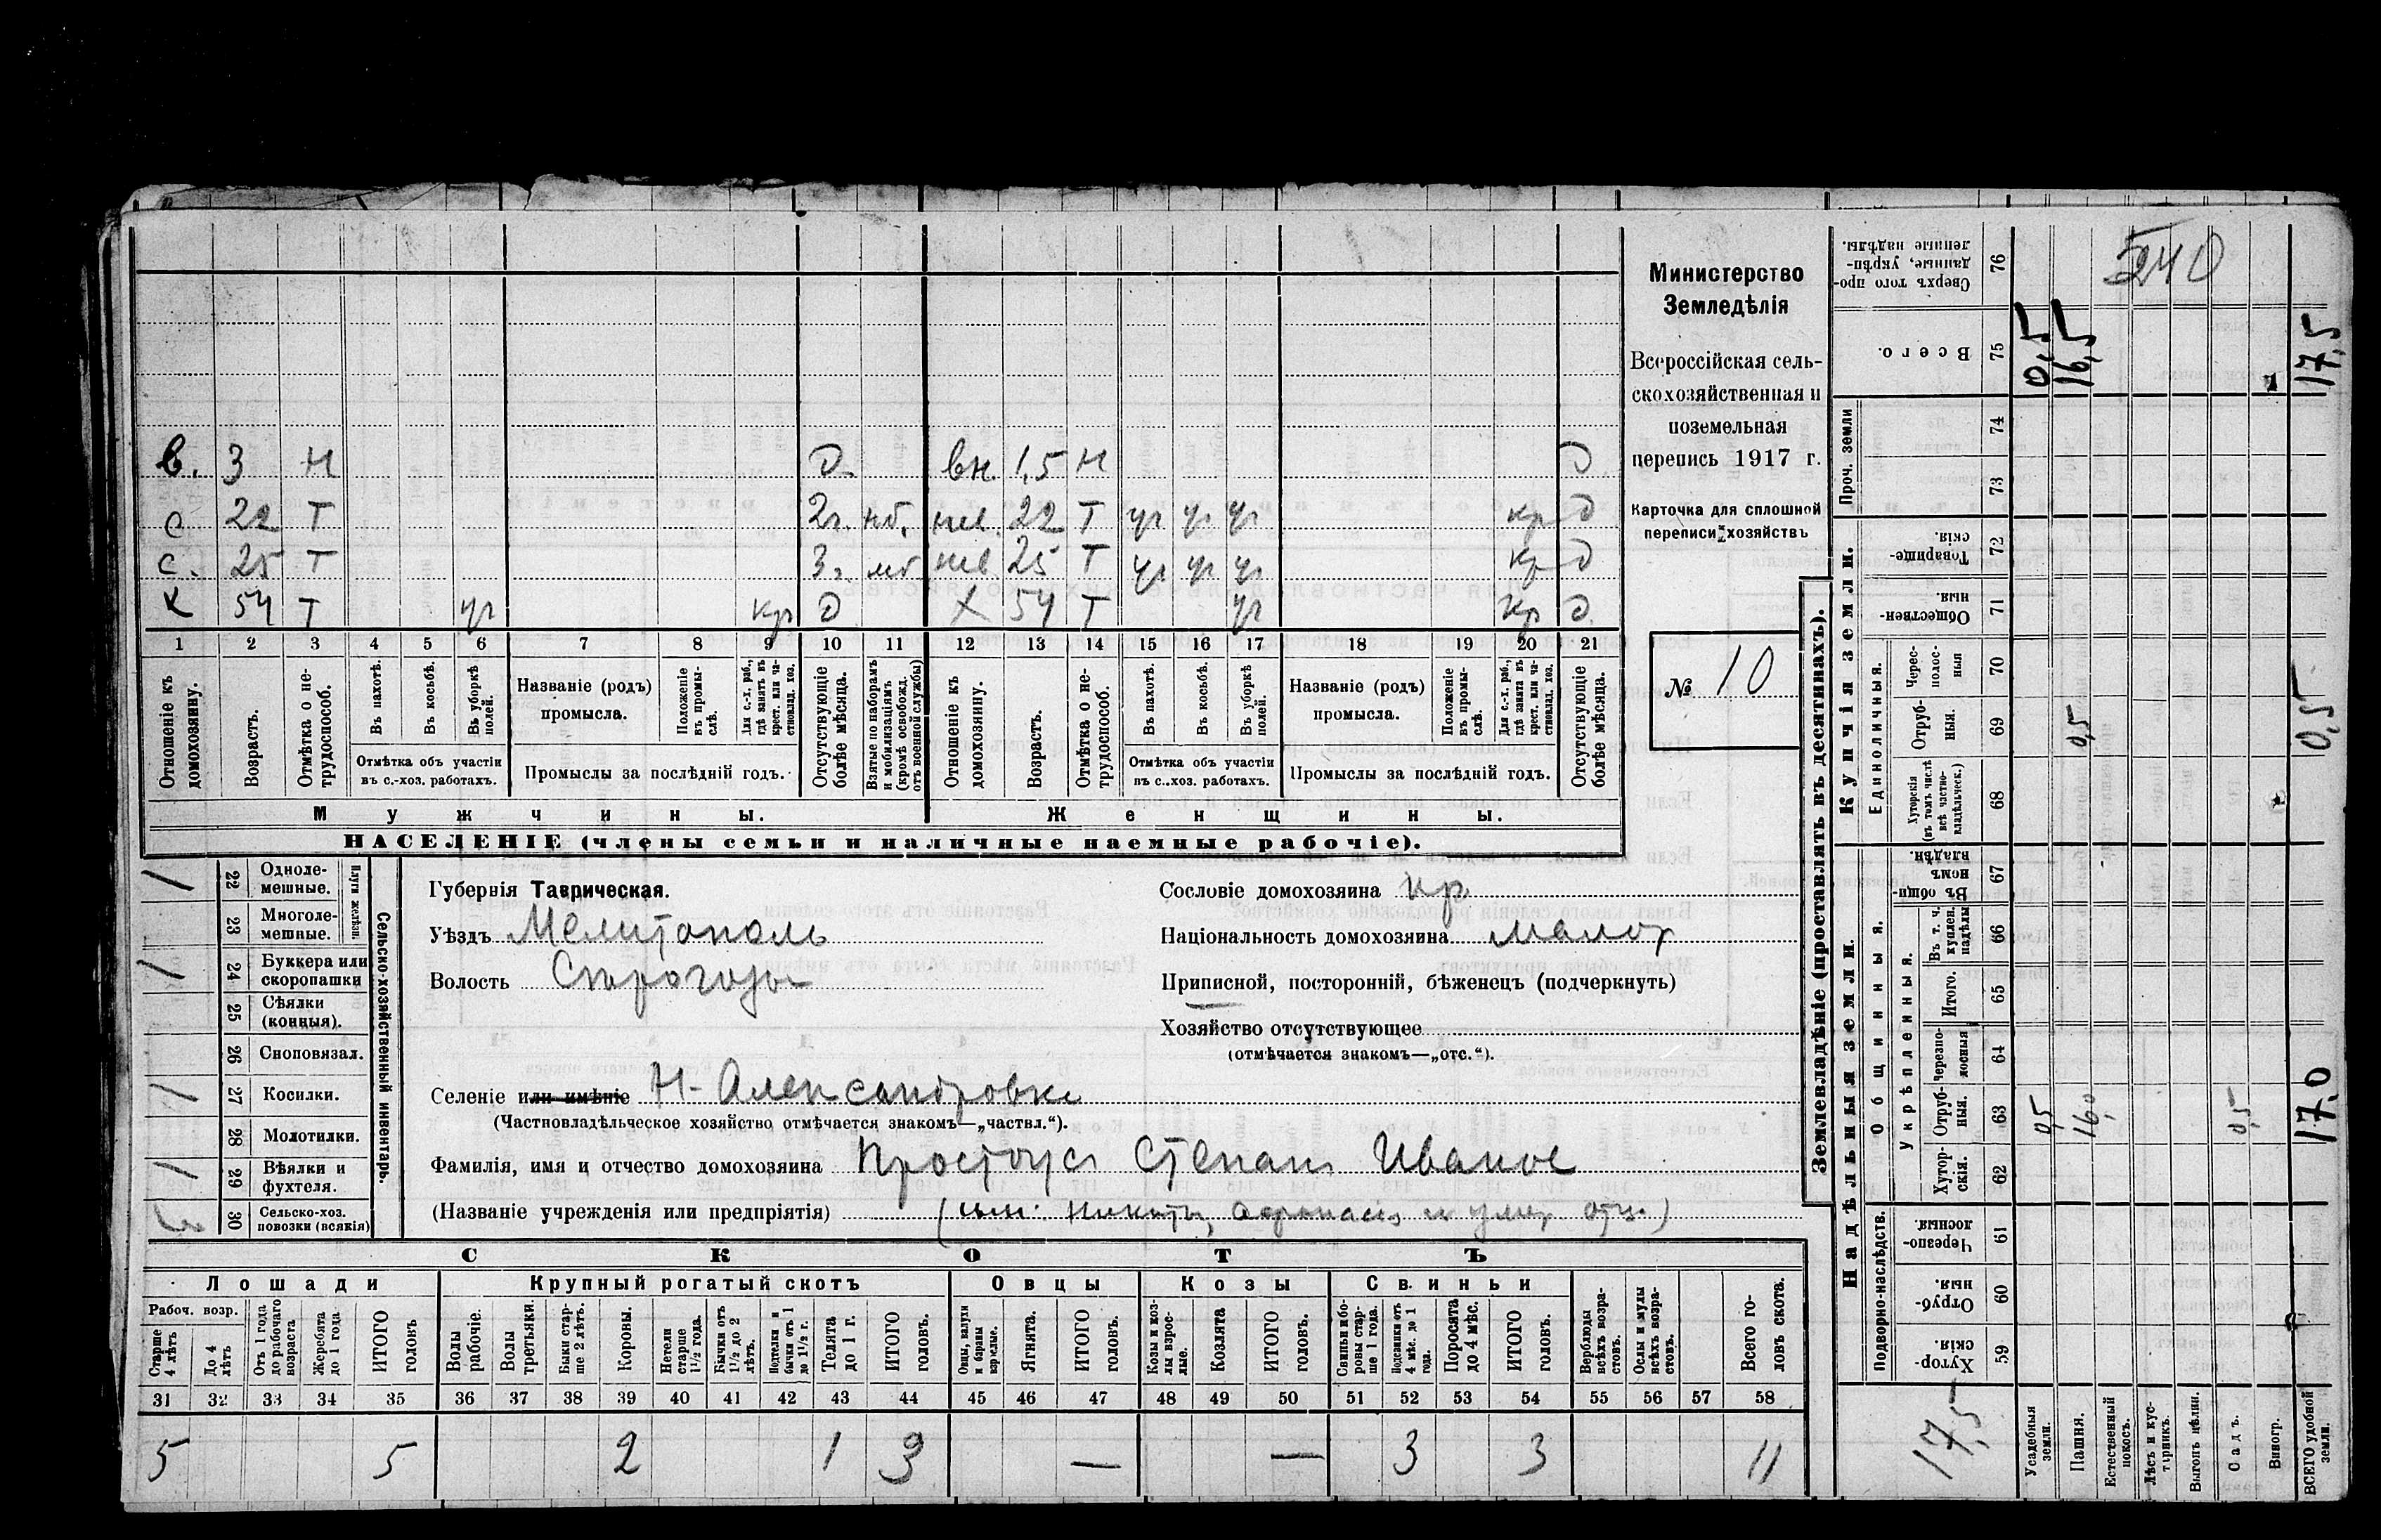 Министерство
Земледѣлія
Всероссійская сель-
скохозяйственная и
поземельная
перепись 1917 г.
Карточка для сплошной
переписи хозяйствъ
№ 10
в. 3 Н д. вн. 1,5 Н д
с 22 Т 2г. нб. нев. 22 Т уг уг уг кр д
с. 25 Т 3г. мб нев 25 Т уг уг уг кр д
х 54 Т уг кр д х 54 Т уг кр д
1 2 3 4 5 6 7 8 9 10 11 12 13 14 15 16 17 18 19 20 21
Отношеніе къ домохозяину.
Возрастъ.
Отмѣтка о не-трудоспособ.
Въ пахотѣ.
Въ косьбѣ.
Въ уборкѣ полей.
Отмѣтка объ участіи
въ с.-хоз. работахъ.
Названіе (родъ)
промысла.
Положеніе въ промы-слѣ.
Для с.-х. раб., гдѣ занятъ въ крест. или ча-стновлад. хоз.
Промыслы за послѣдній годъ.
Отсутствующіе болѣе мѣсяца.
Взятые по наборамъ и мобилизаціямъ (кромѣ освобожд. отъ военной службы)
Отношеніе къ домохозяину.
Возрастъ.
Отмѣтка о не-трудоспособ.
Въ пахотѣ.
Въ косьбѣ.
Въ уборкѣ полей.
Отмѣтка объ участіи
въ с.-хоз. работахъ.
Названіе (родъ)
промысла.
Положеніе въ промы-слѣ.
Для с.-х. раб., гдѣ занята въ крест. или ча-стновлад. хоз.
Промыслы за послѣдній годъ.
Отсутствующіе болѣе мѣсяца.
Мужчины. Женщины.
НАСЕЛЕНІЕ (члены семьи и наличные наемные рабочіе).
Сельско-хозяйственный инвентарь.
Плуги желѣзн.
1 22 Одноле-мешные.
23 Многоле-мешные.
1 24 Буккера или скоропашки
25 Сѣялки (конныя).
26 Сноповязал.
1 27 Косилки.
28 Молотилки.
1 29 Вѣялки и фухтеля.
30 Сельско-хоз. повозки (всякія)
Губернія Таврическая.
Уѣздъ Мелитополь
Волость Сирогозы
Сословіе домохозяина кр
Національность домохозяина малор
Приписной, посторонній, бѣженецъ (подчеркнуть)
Хозяйство отсутствующее
(отмѣчается знакомъ—„отс.“).
Селеніе или имѣніе Н-Александровка
(Частновладѣльческое хозяйство отмѣчается знакомъ—„частвл.“).
Фамилія, имя и отчество домохозяина Простоус Степан Иванов
(Названіе учрежденія или предпріятія) Никиты, Афонасія и умер отц.)
СКОТЪ
Лошади Крупный рогатый скотъ Овцы Козы Свиньи
Рабоч. возр.
Старше 4 лѣтъ
До 4 лѣтъ
Отъ 1 года до рабочаго возраста
Жеребята до 1 года
ИТОГО головъ
Волы рабочіе.
Волы третьяки.
Быки стар-ше 2 лѣтъ.
Коровы.
Нетели старше 1½ года.
Бычки отъ 1½ до 2 лѣтъ.
Подтелки и бычки отъ 1 до 1½ г.
Телята до 1 г.
ИТОГО головъ.
Овцы, валухи и бараны взрослые.
Ягнята.
ИТОГО головъ.
Козы и коз-лы взрос-лые.
Козлята
ИТОГО головъ.
Свиньи и бо-ровы стар-ше 1 года.
Подсвинки отъ 4 мѣс. до 1 года.
Поросята до 4 мѣс.
ИТОГО головъ.
Верблюды всѣхъ возра-стовъ.
Ослы и мулы всѣхъ возра-стовъ.
Всего го-ловъ скота.
31 32 33 34 35 36 37 38 39 40 41 42 43 44 45 46 47 48 49 50 51 52 53 54 55 56 57 58
5 5 2 1 3 — — 3 3 11
Землевладѣніе (проставлять въ десятинахъ).
Надѣльныя земли. Купчія земли.
Подворно-наслѣдств.
Общинныя.
Укрѣпленныя.
Единоличныя.
Проч. земли
59 Хутор-скія.
60 Отруб-ныя.
61 Черезпо-лосныя.
62 Хутор-скія.
63 Отруб-ныя.
64 Черезпо-лосныя
65 Итого.
66 Въ т. ч. куплен. надѣлы
67 Въ общин-номъ владѣн.
68 Хуторскія (въ томъ числѣ всѣ частно-владѣльческ.)
69 Отруб-ныя.
70 Черес-полос-ныя
71 Обществен-ныя.
72 Товарище-скія.
73
74
75 Всего.
76 Сверхъ того про-данные, укрѣп-ленные надѣлы.
Усадебныя земли.
Пашня.
Естественный покосъ.
Лѣсъ и кус-тарникъ.
Выгонъ цѣлин.
Садъ.
Виногр.
ВСЕГО удобной земли.
17,5
0,5 16,0 0,5 17,0
0,5 0,5
0,5 16,5 17,5
240